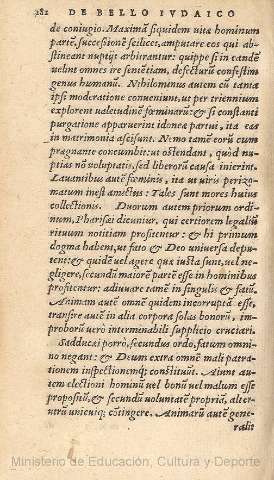 282 DE BELLO IVDAICO
de coniugio. Maximã siquidem uitæ hominum
partẽ, successionẽ scilicet, amputare eos qui ab-
stineant nuptijs arbitrantur: quippe si in eandẽ
uelint omnes ire sentẽtiam, defecturũ confestim
genus humanũ. Nihilominus autem cũ tanta
ipsi moderatione conueniunt, ut per triennium
explorent ualetudinẽ fœminarũ: & si constanti
purgatione apparuerint idoneæ partui, ita eas
in matrimonia asciscunt. Nemo tamẽ eorũ cum
prægnante concumbit: ut ostendant, quòd nu-
ptias nõ uoluptatis, sed liberorũ causa inierint.
Lauantibus autẽ fœminis, ita ut uiris perizo-
matum inest amictus: Tales sunt mores huius
collectionis. Duorum autem priorum ordi-
num, Pharisæi dicuntur, qui certiorem legaliũ
rituum notitiam profitentur: & hi primum
dogma habent, ut fato & Deo uniuersa depu-
tent: & quidẽ uel agere quæ iusta sunt, uel ne-
gligere, secundũ maiorẽ partẽ esse in hominibus
profitentur: adiuuare tamẽ in singulis & fatũ.
Animam autẽ omnẽ quidem incorruptã esse,
transire autẽ in alia corpora solas bonorũ, im-
proborũ uerò interminabili supplicio cruciari.
Sadducæi porrò, secundus ordo, fatum omni-
no negant: & Deum extra omnẽ mali patra-
tionem inspectionemq́; constituũt. Aiunt au-
tem electioni hominũ uel bonũ uel malum esse
propositũ, & secundũ uoluntatẽ propriã, alte-
rutrũ unicuiq; cõtingere. Animarũ autẽ gene-
ralit
Ministerio de Educación, Cultura y Deporte